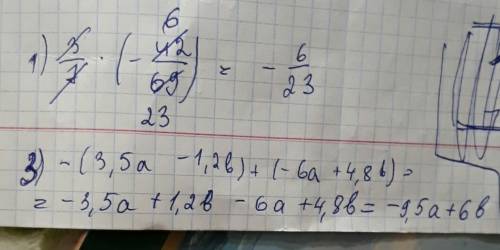 1) 3/7 · (- 42/69) = - 6/23
6
23
3) -(3,5a - 1,2b) + (-6a + 4,8b) =
= -3,5a + 1,2b - 6a + 4,8b = -9,5a + 6b